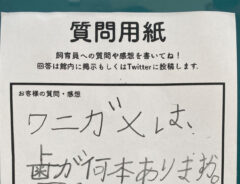 質問用紙
飼育員への質問や感想を書いてね！
回答は館内に掲示もしくはTwitterに投稿します。
お客様の質問・感想
ワニガメは、
歯が何本ありますか。